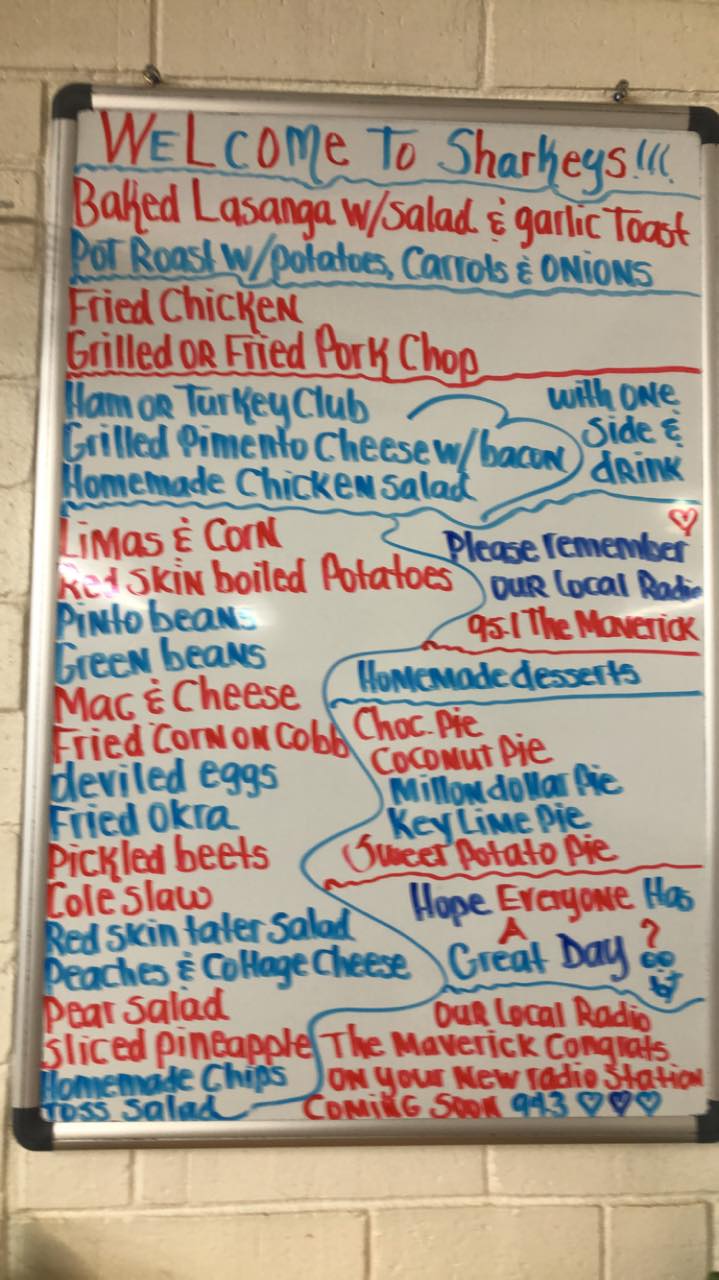 WELCOMe To Sharkeys!!!
Baked Lasanga w/salad & garlic Toast
Pot Roast w/potatoes, Carrots & ONIONS
Fried Chicken
Grilled OR Fried Pork Chop
Ham OR Turkey Club
Grilled Pimento Cheese w/bacon
Homemade Chicken Salad
with ONE
Side &
drink
Limas & Corn
Red Skin boiled Potatoes
Pinto beans
Green beans
Mac & Cheese
Fried Corn on Cobb
deviled eggs
Fried Okra
Pickled beets
Cole slaw
Red skin tater Salad
Peaches & Cottage Cheese
Pear Salad
Sliced Pineapple
Homemade Chips
Toss Salad
Please remember
OUR Local Radio
95.1 The Maverick
Homemade desserts
Choc. Pie
Coconut Pie
Millon dollar Pie
Key Lime Pie
Sweet Potato Pie
Hope Everyone Has
A
Great Day
OUR Local Radio
The Maverick Congrats
ON your New radio Station
COMING SOON 94.3